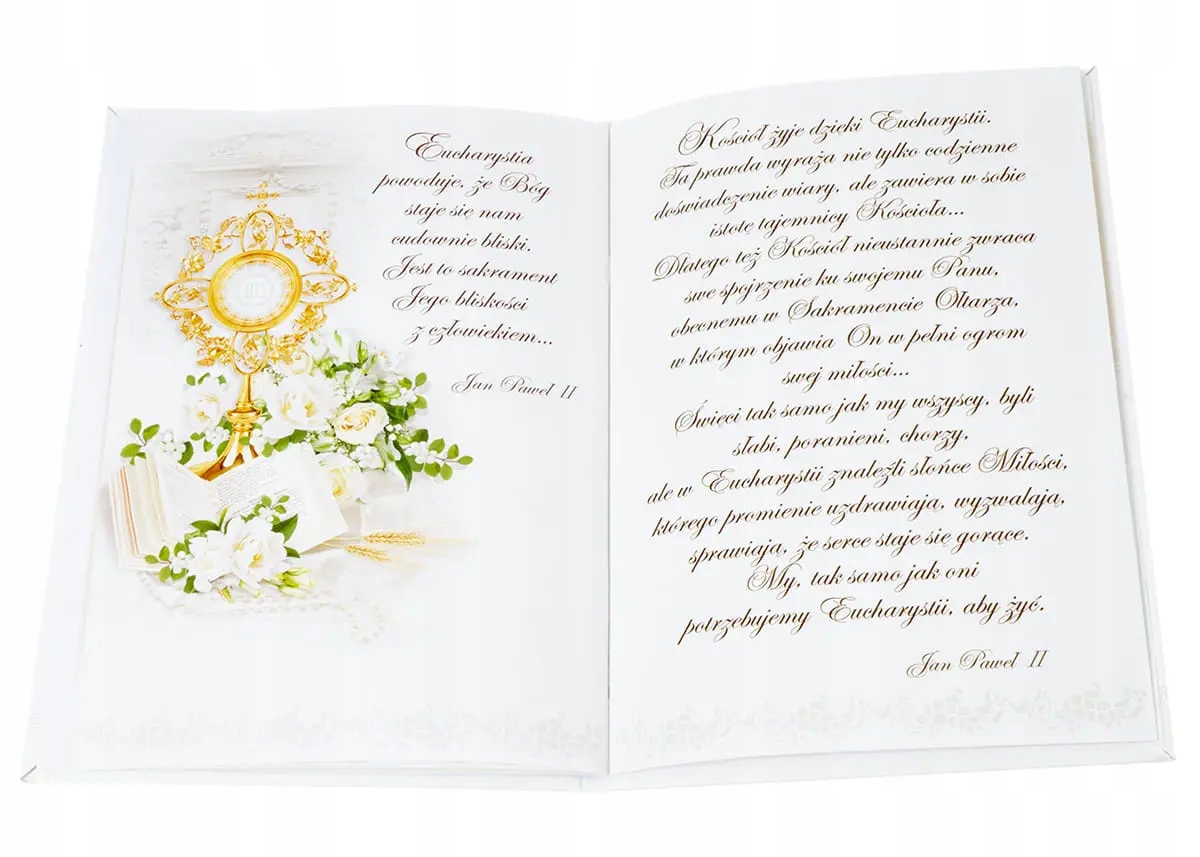 Eucharystia
powoduje, że Bóg
staje się nam
cudownie bliski.
Jest to sakrament
Jego bliskości
z człowiekiem...
Jan Paweł II
Kościół żyje dzięki Eucharystii.
Ta prawda wyraża nie tylko codzienne
doświadczenie wiary, ale zawiera w sobie
istotę tajemnicy Kościoła...
Dlatego też Kościół nieustannie zwraca
swe spojrzenie ku swojemu Panu,
obecnemu w Sakramencie Ołtarza,
w którym objawia On w pełni ogrom
swej miłości...
Święci tak samo jak my wszyscy, byli
słabi, poranieni, chorzy,
ale w Eucharystii znaleźli słońce Miłości,
którego promienie uzdrawiają, wyzwalają,
sprawiają, że serce staje się gorące.
My, tak samo jak oni
potrzebujemy Eucharystii, aby żyć.
Jan Paweł II